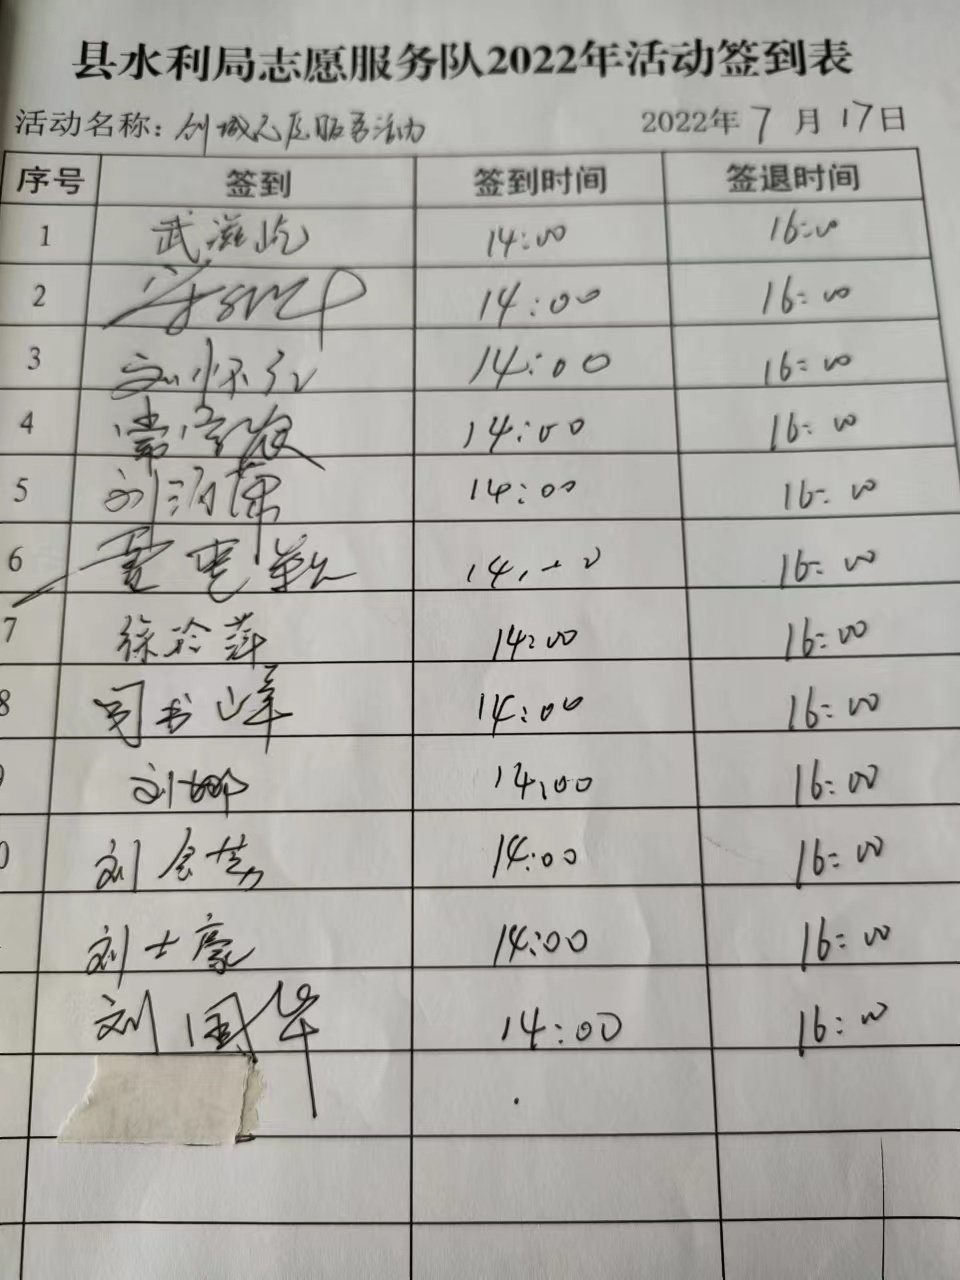 县水利局志愿服务队2022年活动签到表
活动名称：创城志愿服务活动 2022年7月17日
序号 签到 签到时间 签退时间
1 武滋屹 14:00 16:00
2 14:00 16:00
3 刘怀引 14:00 16:00
4 常 14:00 16:00
5 刘 14:00 16:00
6 14:00 16:00
7 徐玲萍 14:00 16:00
8 司书峰 14:00 16:00
刘娜 14:00 16:00
0 刘 14:00 16:00
刘士豪 14:00 16:00
刘国华 14:00 16:00